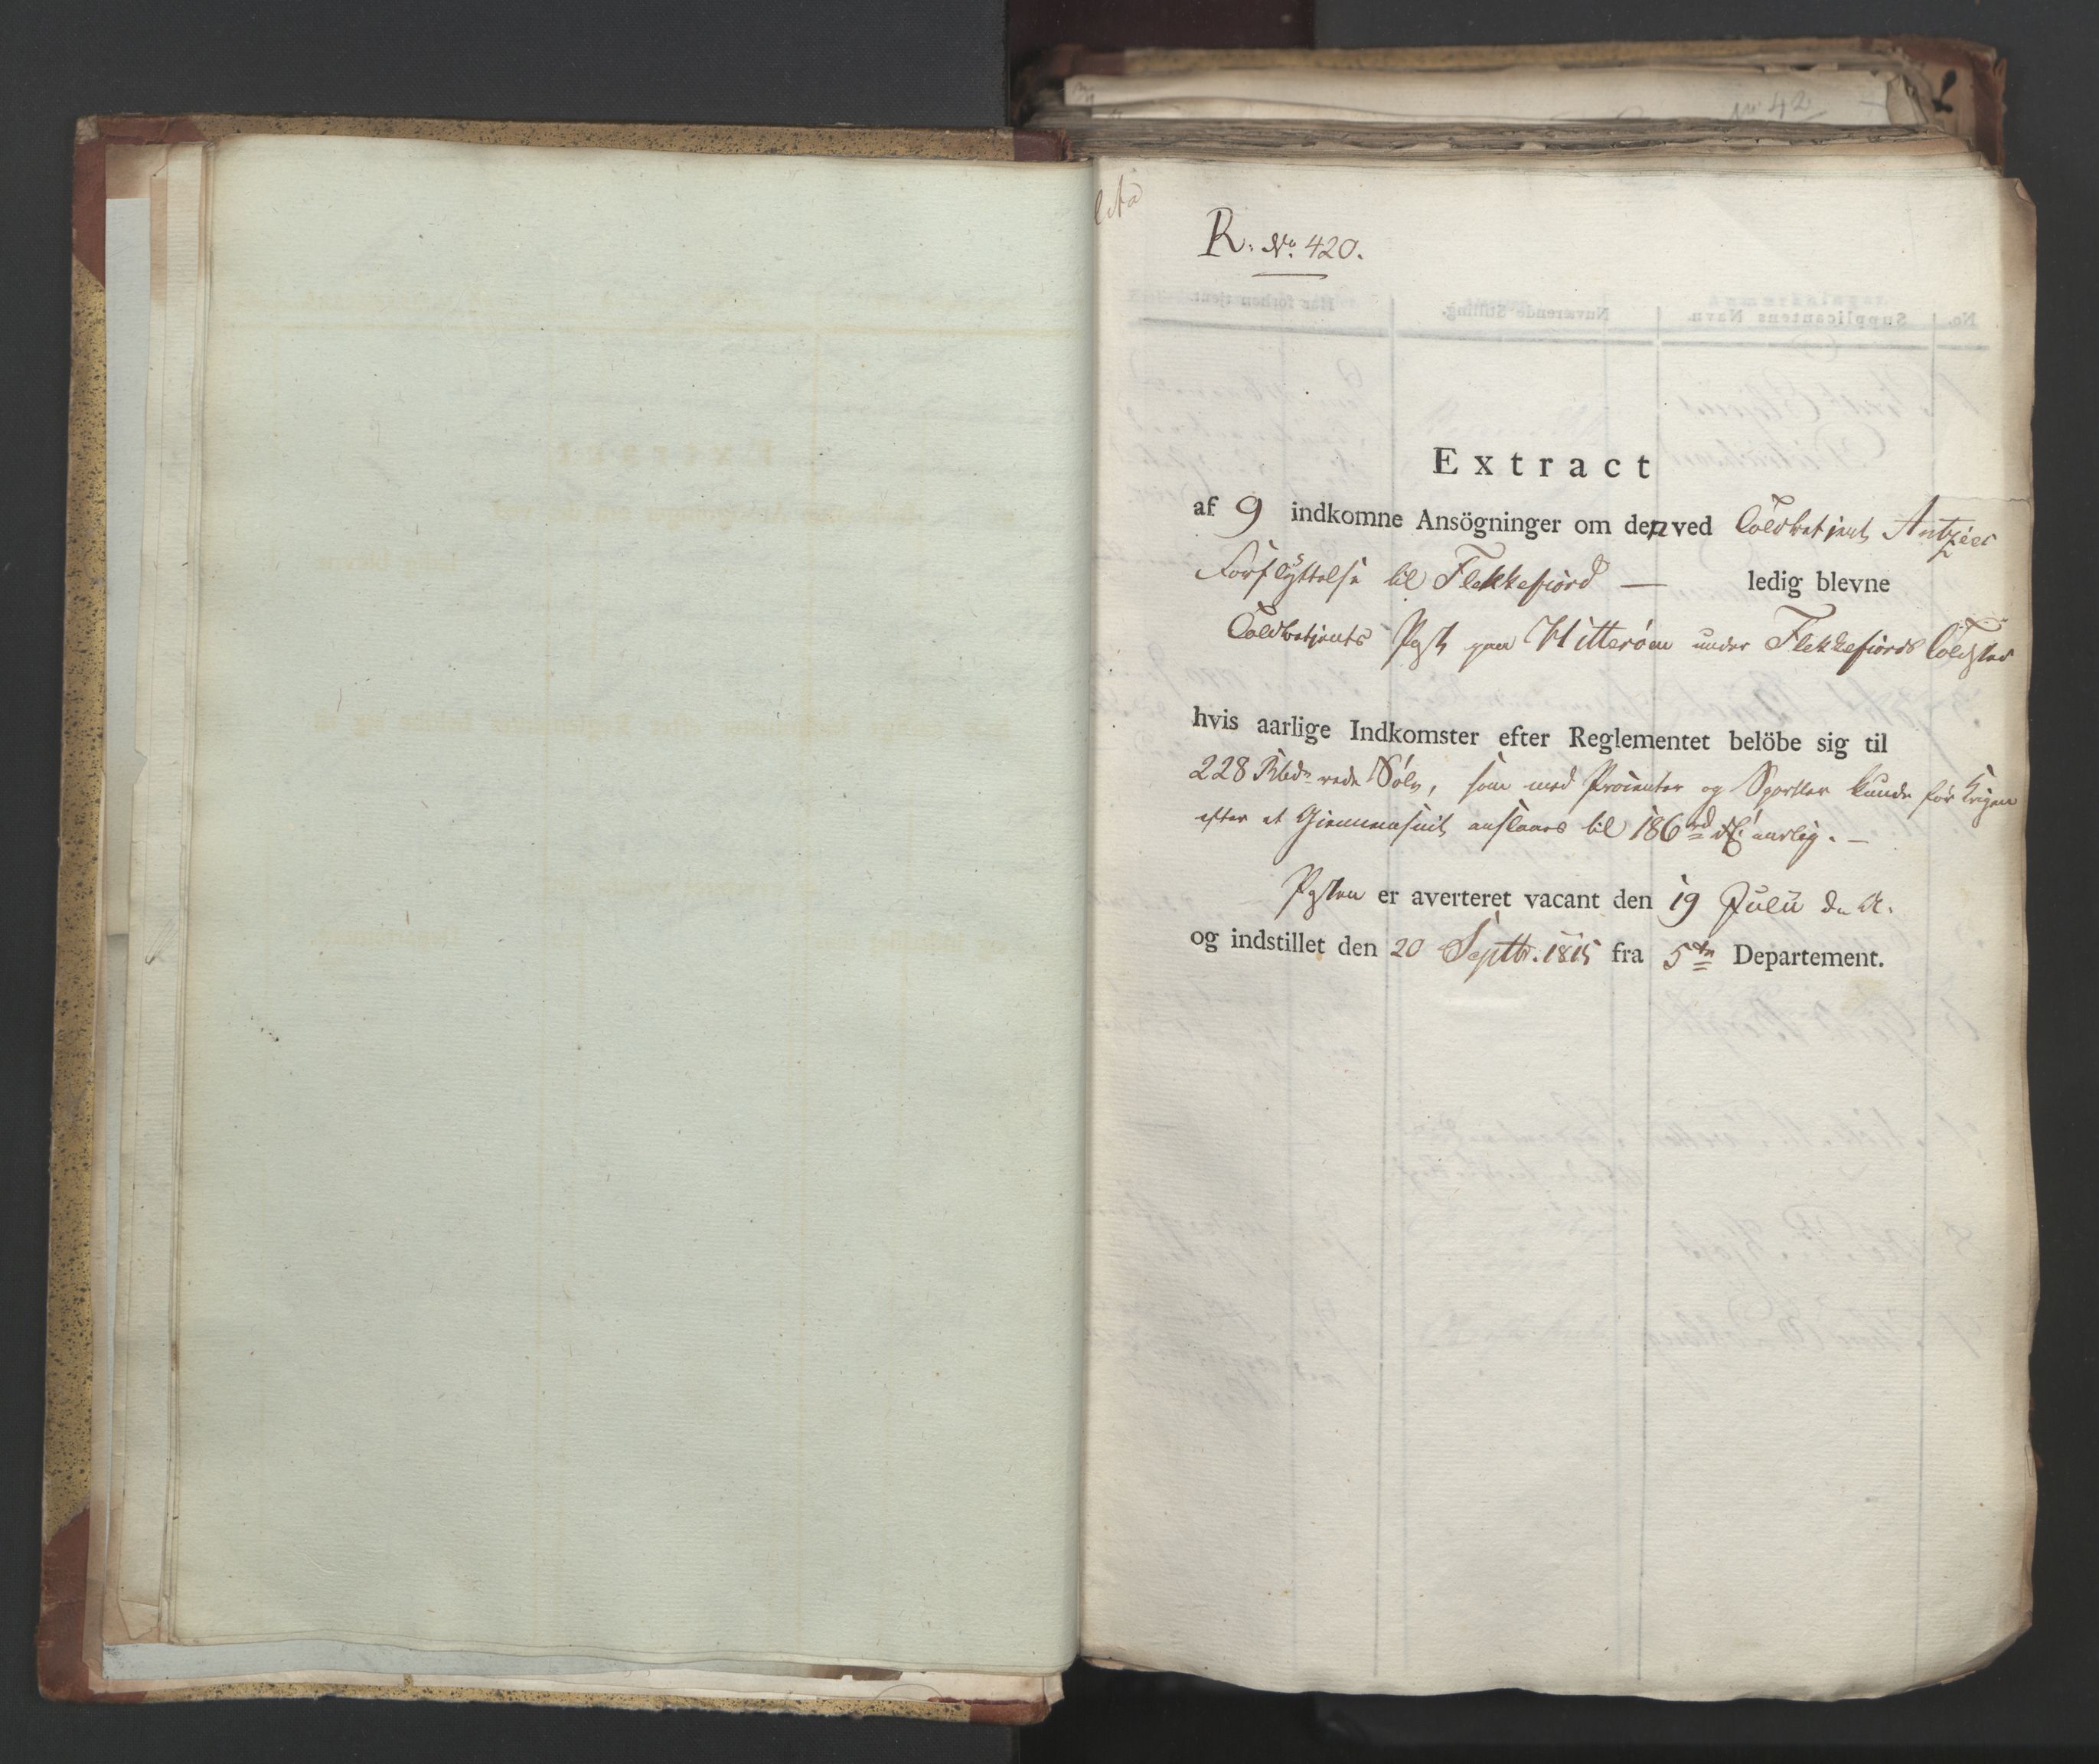 R. No. 420.
Extract
af 9 indkomne Ansögninger om den ved Toldbetjent Antzèes
Forflÿttelse til Flekkefiord — ledig blevne
Toldbetjents Post paa Hitteröen under Flekkefiords Toldsted
hvis aarlige Indkomster efter Reglementet belöbe sig til
228 Rbdr rede Sölv, som med Procenter og Sportler kunde för Krigen
efter et Giennemsnit anslaaes til 186 rd aarlig. —
Posten er averteret vacant den 19 Julii d. A.
og indstillet den 20 Septbr. 1815 fra 5te Departement.